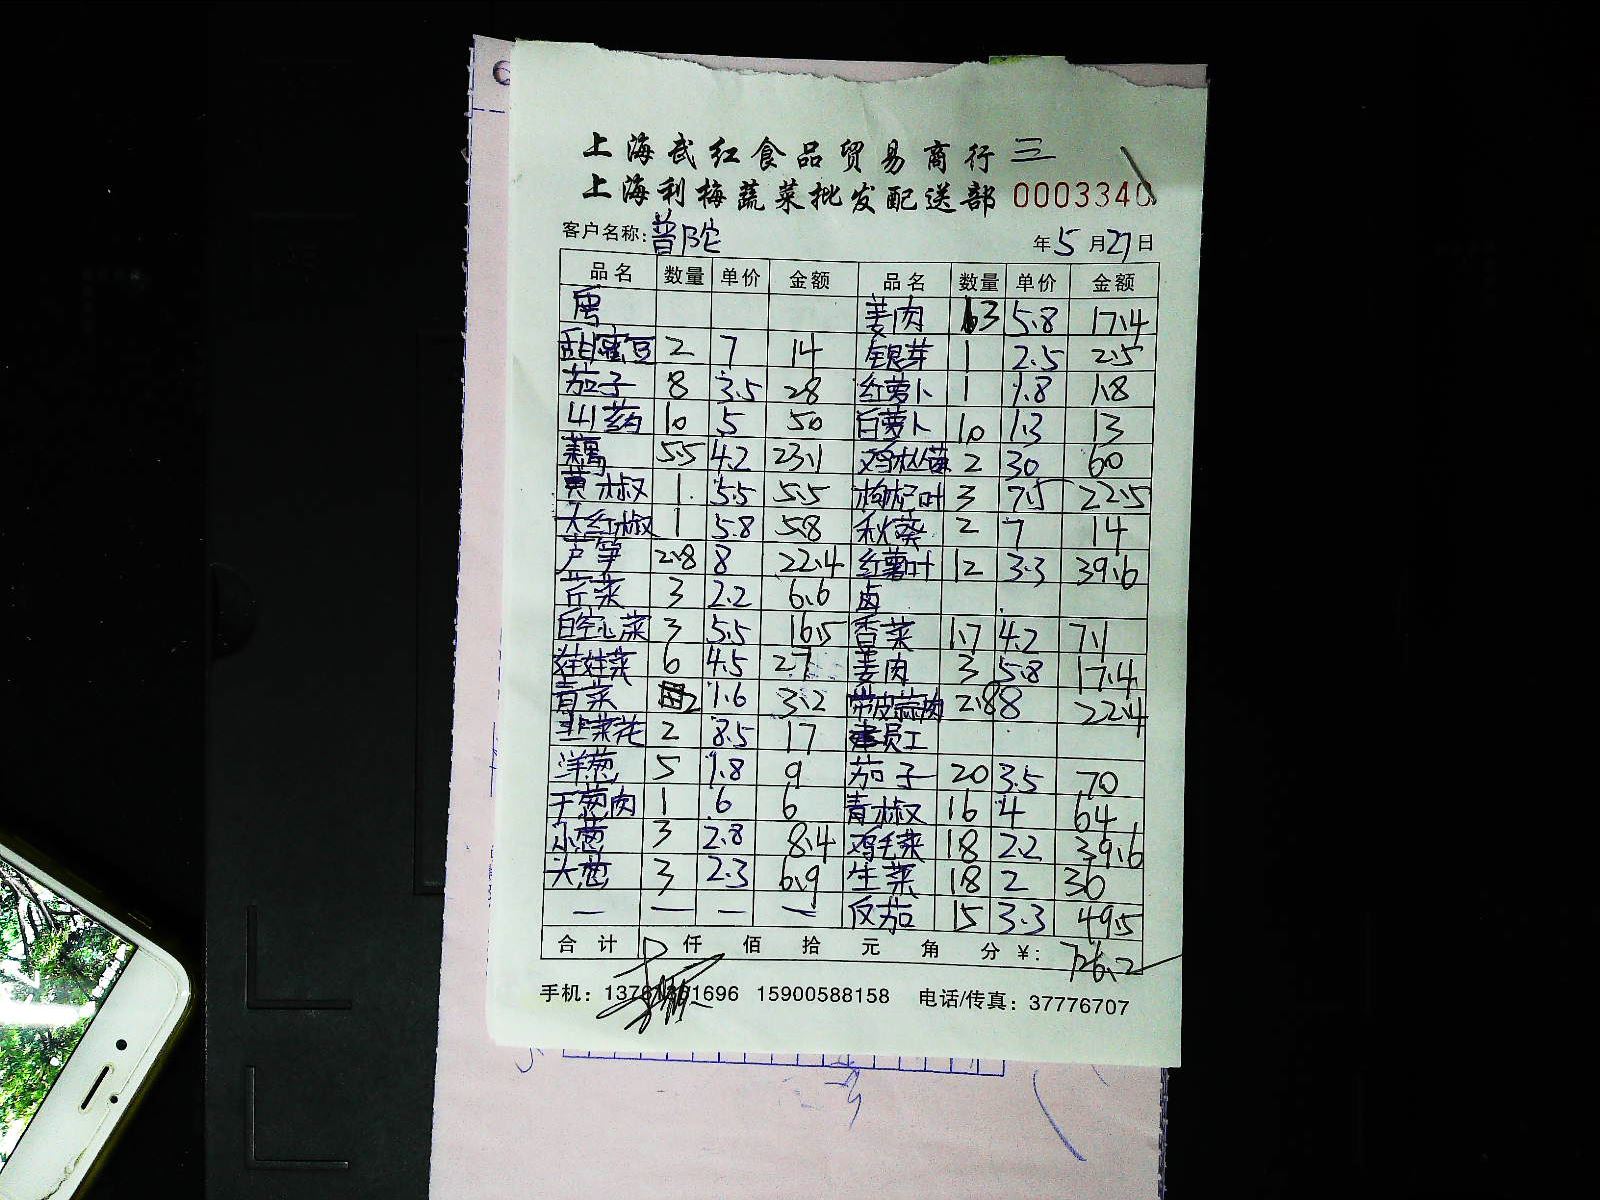 上海武红食品贸易商行 三
上海利梅蔬菜批发配送部 0003340
客户名称: 普陀 年 5 月 27 日
品名 数量 单价 金额 品名 数量 单价 金额
姜肉 3 5.8 17.4
甜蜜豆 2 7 14 银芽 1 2.5 2.5
茄子 8 3.5 28 红萝卜 1 1.8 1.8
山药 10 5 50 白萝卜 10 1.3 13
藕 5.5 4.2 23.1 鸡枞菇 2 30 60
黄椒 1 5.5 5.5 枸杞叶 3 7.5 22.5
大红椒 1 5.8 5.8 秋葵 2 7 14
芦笋 2.8 8 22.4 红薯叶 12 3.3 39.6
芹菜 3 2.2 6.6 卤
白空心菜 3 5.5 16.5 香菜 1.7 4.2 7.1
娃娃菜 6 4.5 27 姜肉 3 5.8 17.4
青菜 2 1.6 3.2 带皮蒜肉 2.8 8 22.4
韭菜花 2 8.5 17 员工
洋葱 5 1.8 9 茄子 20 3.5 70
干葱肉 1 6 6 青椒 16 4 64
小葱 3 2.8 8.4 鸡毛菜 18 2.2 39.6
大葱 3 2.3 6.9 生菜 18 2 36
— — — — 反茄 15 3.3 49.5
合计 仟 佰 拾 元 角 分 ¥: 726.2
手机: 1696 15900588158 电话/传真: 37776707